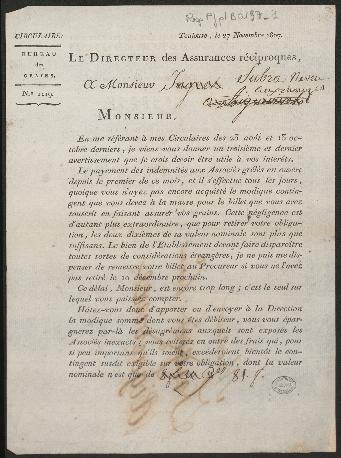 CIRCULAIRE.
Toulouse, le 27 Novembre 1807.
BUREAU
des
GRAINS.
LE DIRECTEUR des Assurances réciproques,
A Monsieur
MONSIEUR,
En me référant à mes Circulaires des 23 août et 13 oc-
tobre derniers, je viens vous donner un troisième et dernier
avertissement que je crois devoir être utile à vos intérêts.
Le payement des indemnités aux Associés grêlés est ouvert
depuis le premier de ce mois, et il s'effectue tous les jours,
quoique vous n'ayez pas encore acquitté le modique contin-
gent que vous devez à la masse pour le billet que vous avez
souscrit en faisant assurer vos grains. Cette négligence est
d'autant plus extraordinaire, que pour retirer votre obliga-
tion, les deux dixièmes de sa valeur nominale sont plus que
suffisans. Le bien de l'Etablissement devant faire disparoître
toutes sortes de considérations étrangères, je ne puis me dis-
penser de remettre votre billet au Procureur si vous ne l'avez
pas retiré le 10 décembre prochain.
Ce délai, Monsieur, est encore trop long; c'est le seul sur
lequel vous puissiez compter.
Hâtez-vous donc d'apporter ou d'envoyer à la Direction
la modique somme dont vous êtes débiteur, vous vous épar-
gnerez par-là les désagrémens auxquels sont exposés les
Associés inexacts; vous éviterez en outre des frais qui, pour
si peu importans qu'ils soient, excéderoient bientôt le con-
tingent susdit exigible sur votre obligation, dont la valeur
nominale n'est que de 81 f.